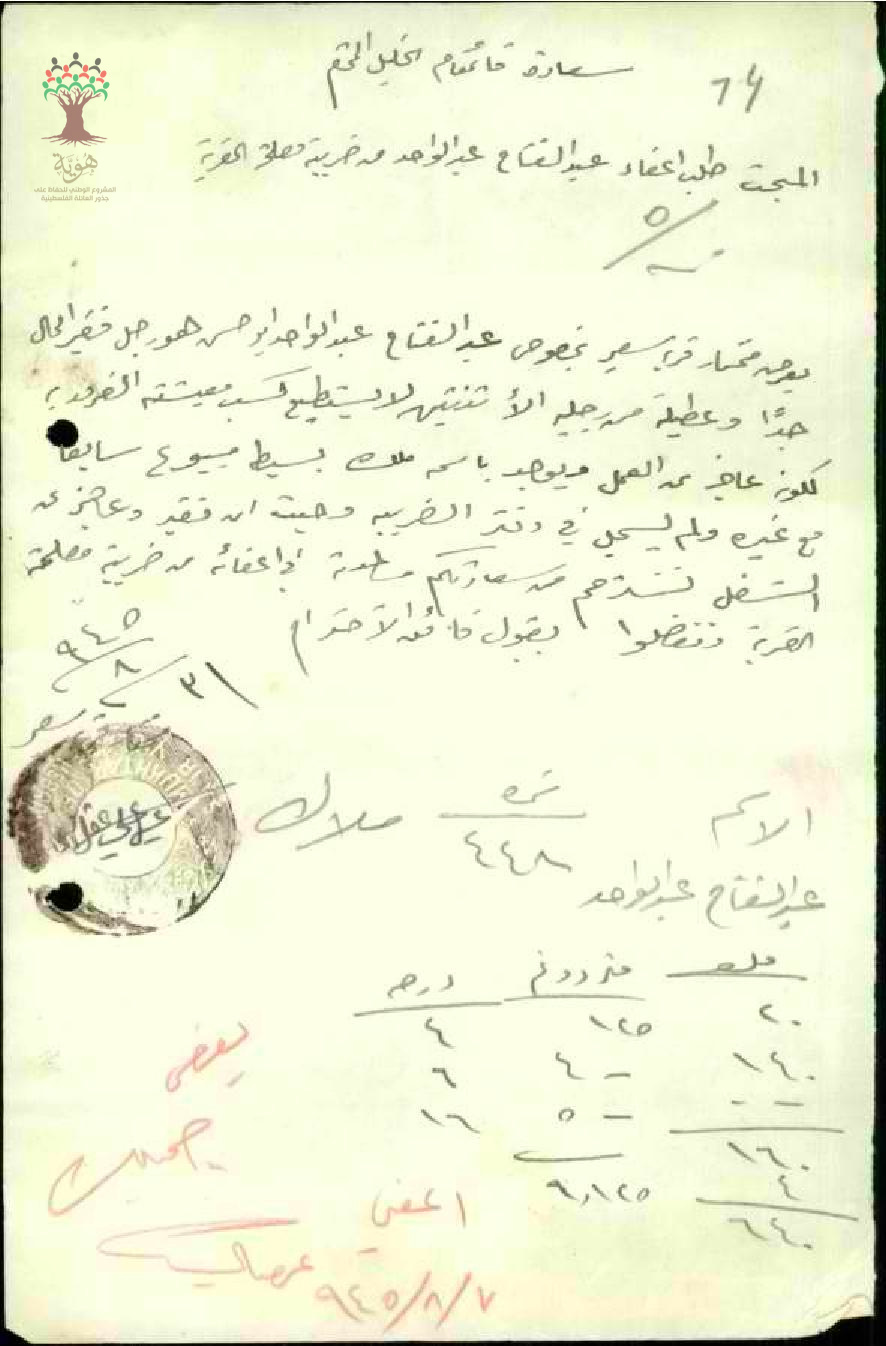 سعادة قائمقام الخليل المحترم
14
هوية
المشروع الوطني للحفاظ على
جذور العائلة الفلسطينية
المبحث طلب اعفاء عبد الفتاح عبد الواحد من ضريبة مصلحة القرية
٥
يعرض مختار قرية سعير بخصوص عبد الفتاح عبد الواحد ابو حسن هو رجل فقير الحال
جدًا وعطيلة من رجليه الأثنتين لا يستطيع كسب معيشته الضرورية
لكونه عاجز عن العمل ويوجد باسمه ملك بسيط مبيوع سابقا
مع غيره ولم يسجل في دفتر الضريبه وحيث انه فقير وعاجز عن
الشغل نسترحم من سعادتكم في اعفائه من ضريبة مصلحة
القرية وتفضلوا بقبول فائق الاحترام
٣١/٨/٩٤٥
سعير
الاسم نمره ملاك
٤٤٨
عبد الفتاح عبد الواحد
ملف دونم درجه
٢٠ ١٢٥ ٤
١٤٠ ٤ - ٦
-- ٥ - ١٦
١٦٠
٩،١٢٥
٤
٦٤٠
يعفى
اعفي
٧/٨/٩٤٥